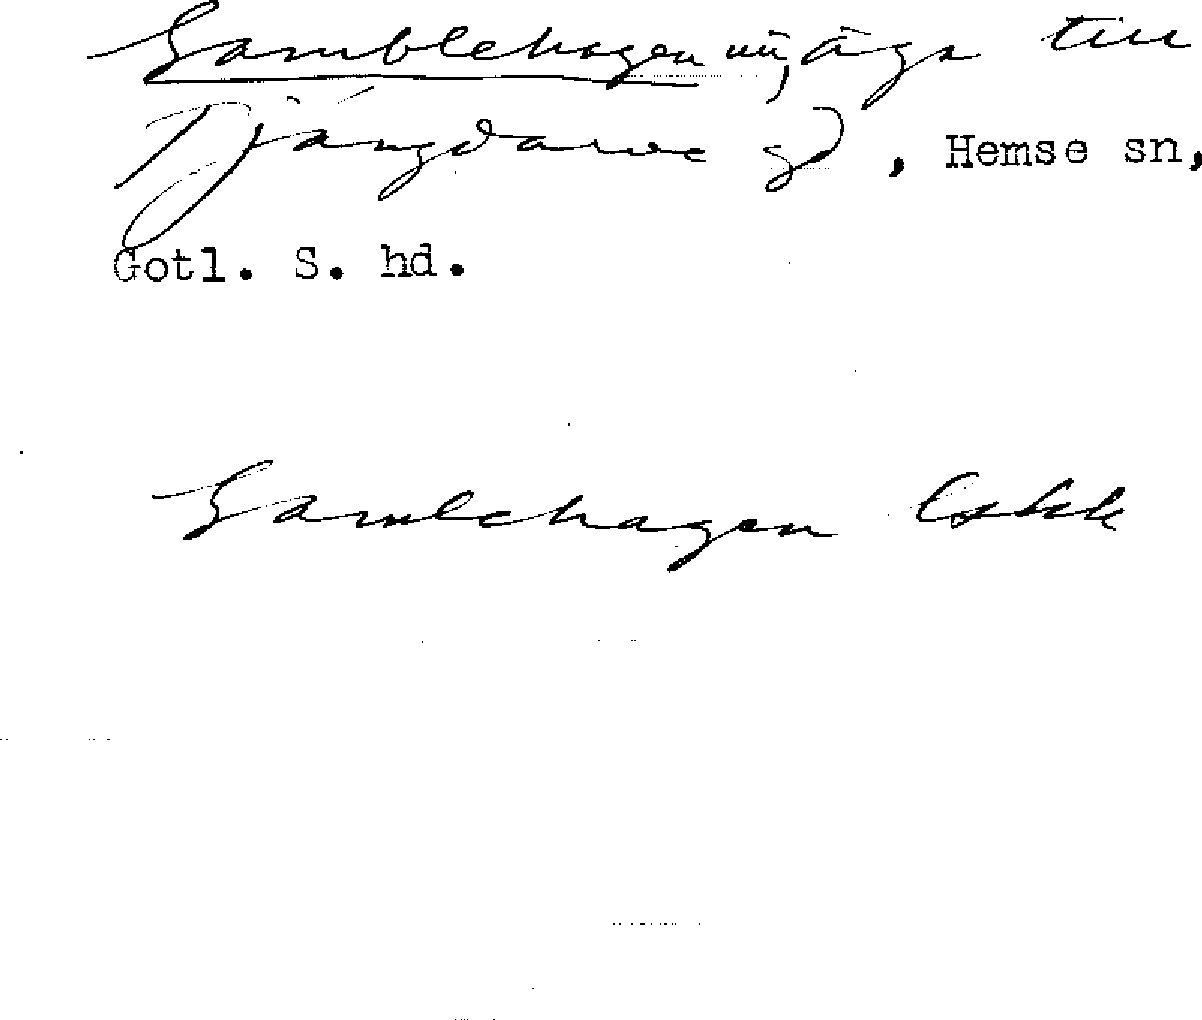 Gamblehagen nu, äga till
Tjängdarve gd, Hemse sn,
Gotl. S. hd.
Gamlehagen Eskk